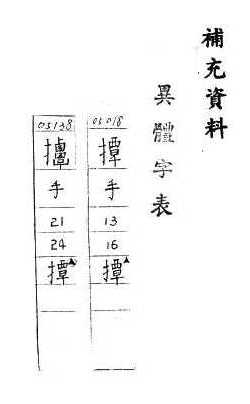 補充資料
異體字表
05018
撢
手
13
16
撢▲
05138
手
21
24
撢▲